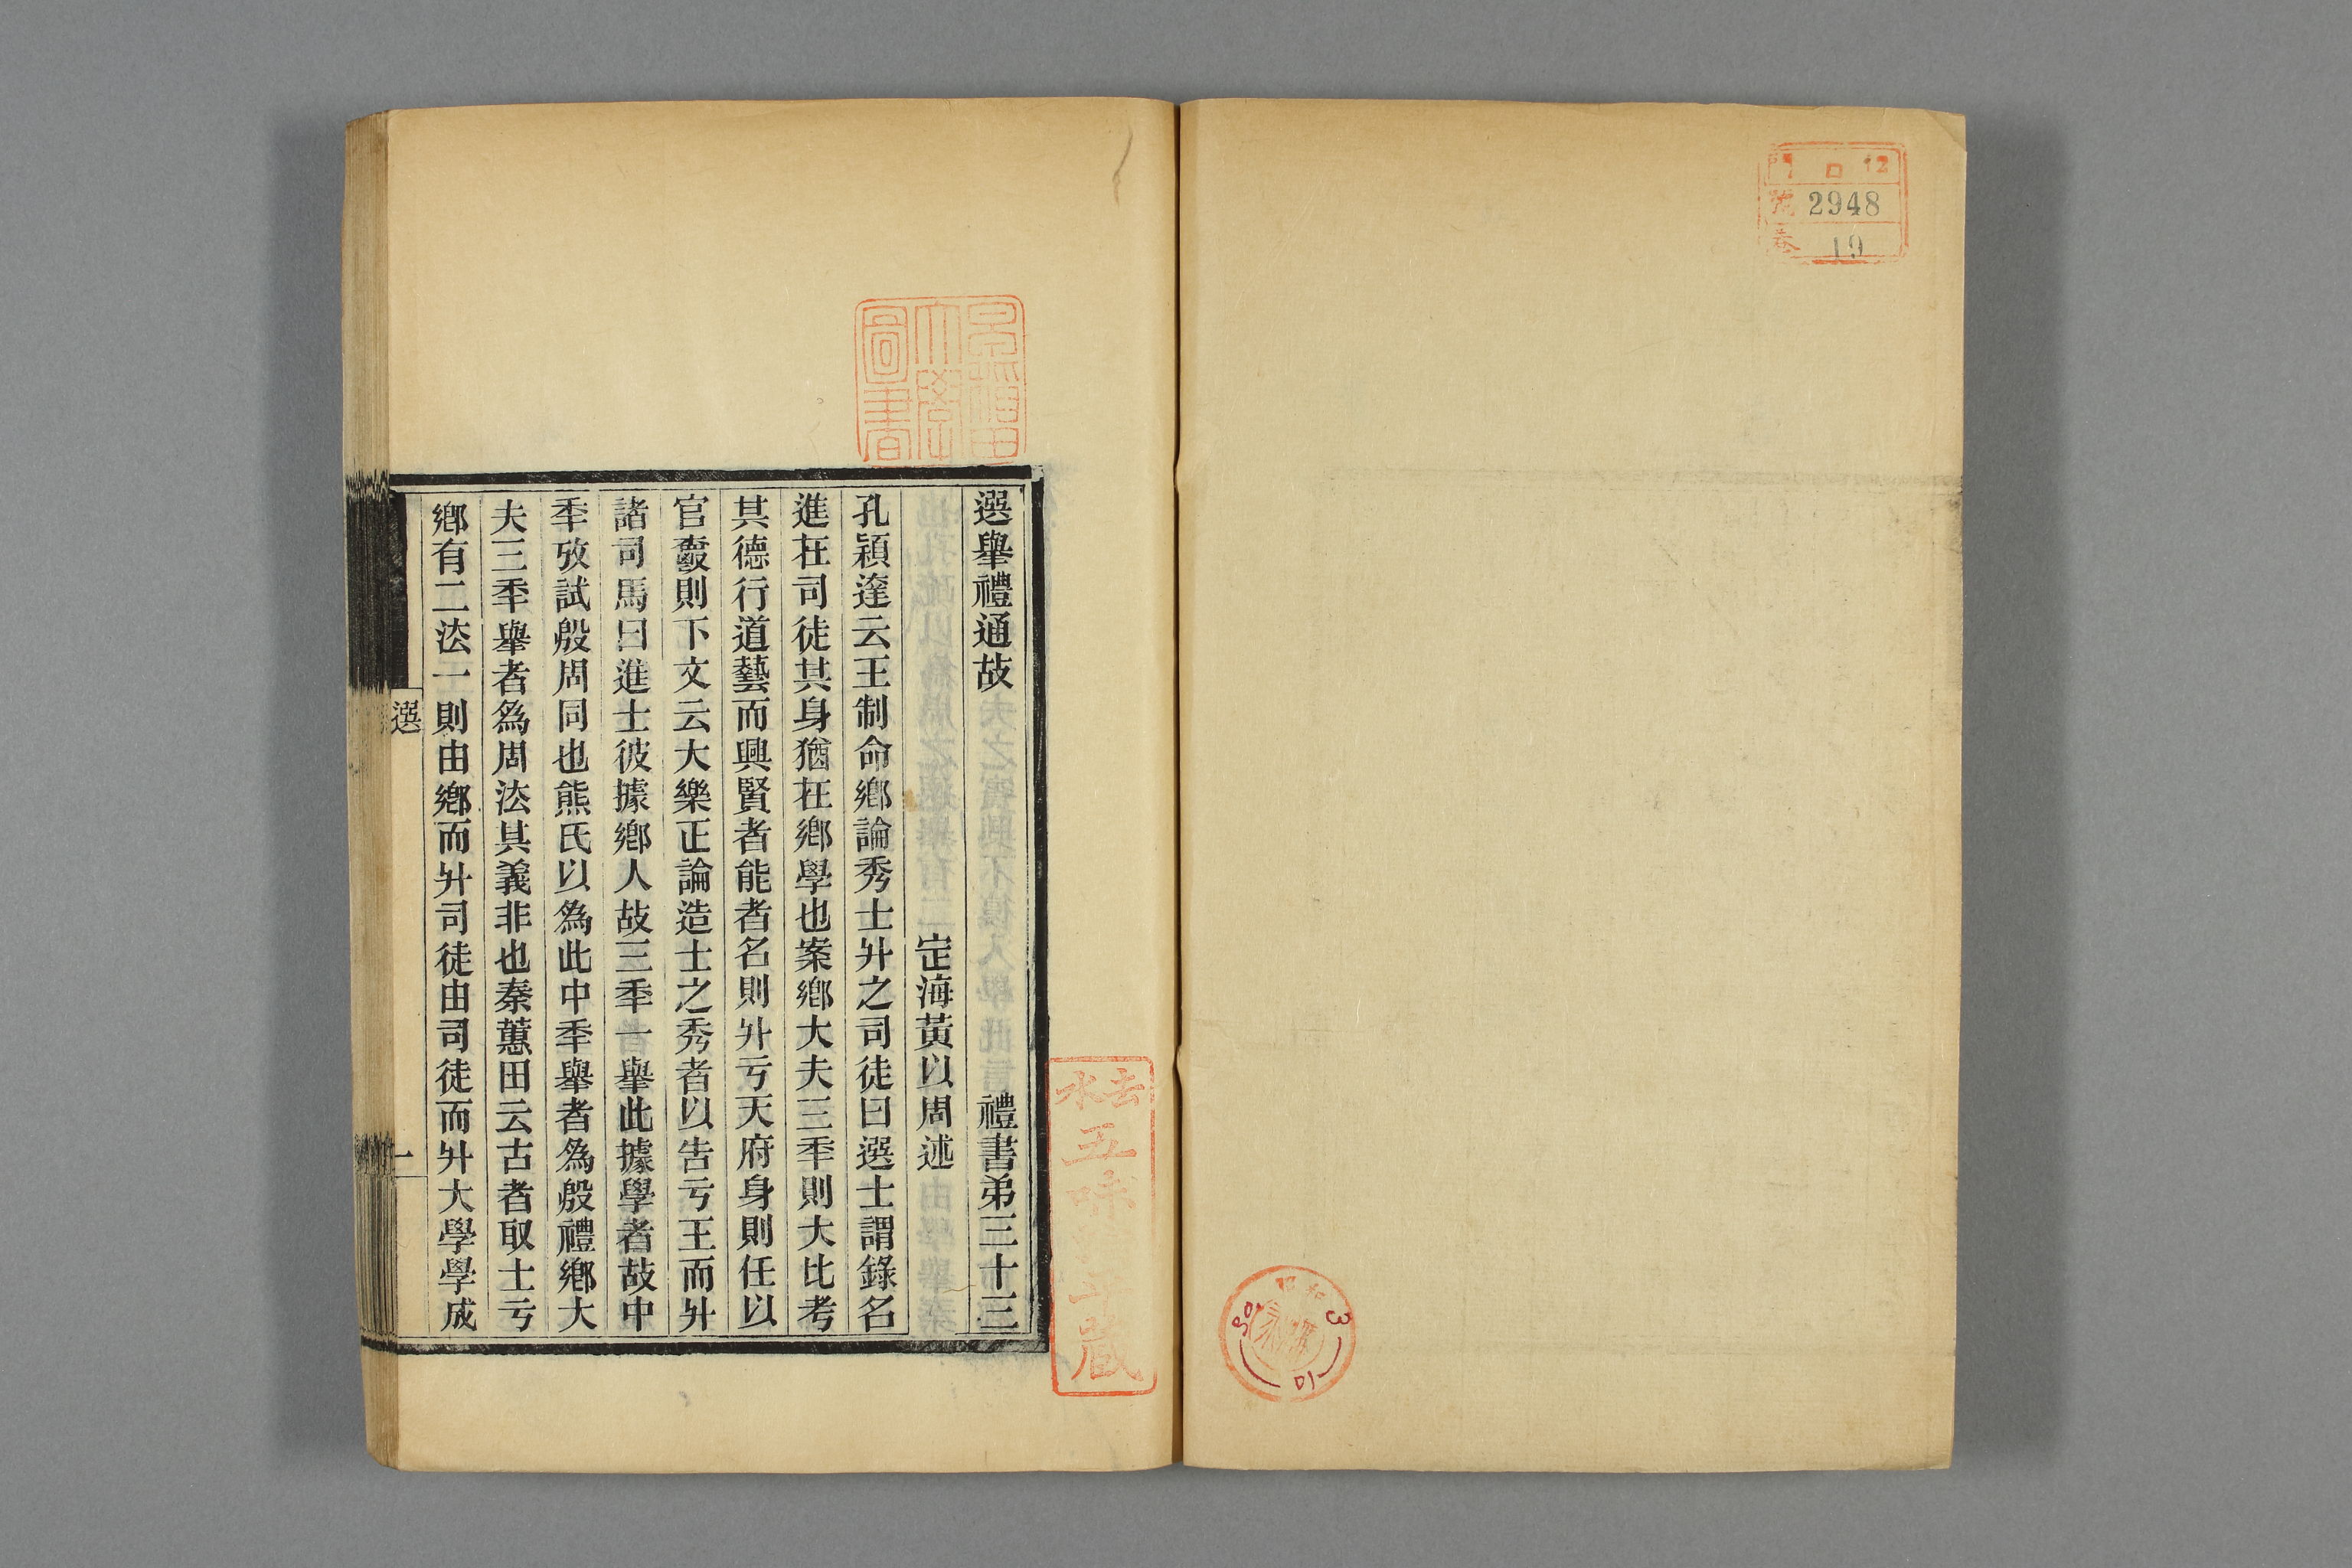 門 口 12
號 2948
卷 19
昭和
3
10
30
早稲田
大學
圖書
選舉禮通故 禮書弟三十三
定海黃以周述
孔穎達云王制命鄉論秀士升之司徒曰選士謂錄名
進在司徒其身猶在鄉學也案鄉大夫三秊則大比考
其德行道藝而興賢者能者名則升亏天府身則任以
官爵則下文云大樂正論造士之秀者以告亏王而升
諸司馬曰進士彼據鄉人故三秊一舉此據學者故中
秊攷試殷周同也熊氏以為此中秊舉者為殷禮鄉大
夫三秊舉者為周法其義非也秦蕙田云古者取士亏
鄉有二法一則由鄉而升司徒由司徒而升大學學成
選
一
五
藏